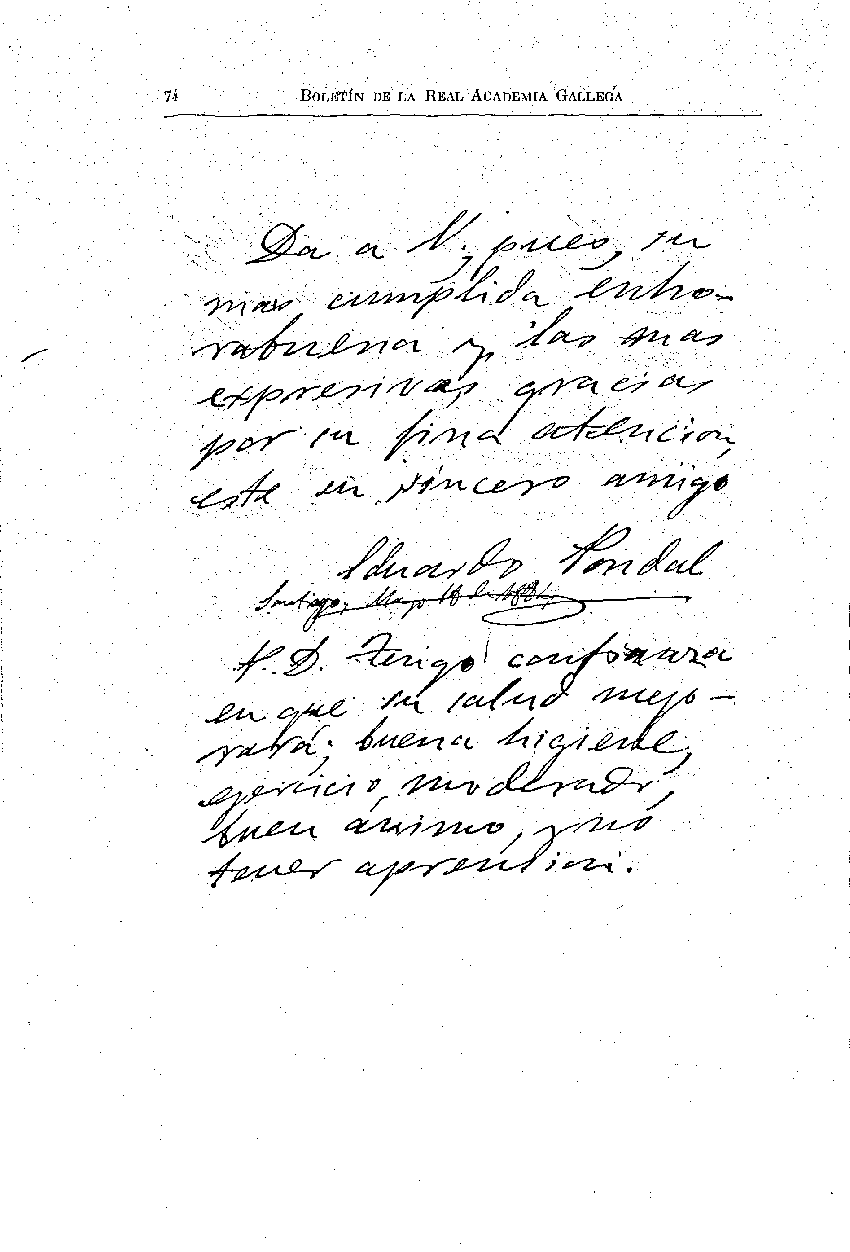 74 BOLETÍN DE LA REAL ACADEMIA GALLEGA
Da a V., pues, su
mas cumplida enho-
rabuena y las mas
expresivas gracias
por su fina atencion,
este su sincero amigo
Eduardo Pondal
Santiago, Mayo 18 de
P.D. Tengo confianza
en que su salud mejo-
rará; buena higiene,
ejercicio, moderado,
buen ánimo, y no
tener aprension.